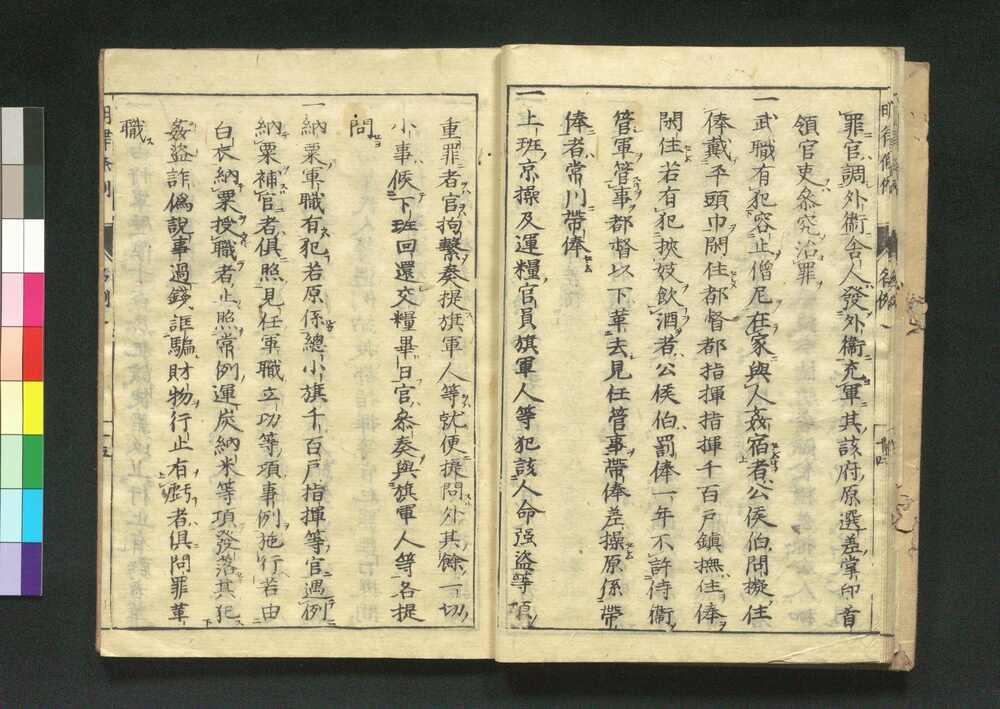 罪官調外衛舎人發外衛充軍其該府原選差掌印首
領官吏叅究治罪
一武職有犯容止僧尼在家與人姦宿者公侯伯問擬住
俸戴平頭巾閑住都督都指揮指揮千百戸鎮撫住俸
閑住若有犯挾妓飲酒者公侯伯罰俸一年不許侍衛
管軍管事都督以下革去見任管事帶俸差操原係帶
俸者常川帶俸
一上班京操及運糧官員旗軍人等犯該人命强盗等項
重罪者官拘繫奏提旗軍人等就便提問外其餘一切
小事候下班回還交糧畢日官叅奏與旗軍人等各提
問
一納粟軍職有犯若原係總小旗千百戸指揮等官遇例
納粟補官者俱照見任軍職立功等項事例施行若由
白衣納粟授職者止照常例運炭納米等項發落其犯
姦盗詐偽説事過錢誆騙財物行止有虧者俱問罪革
職